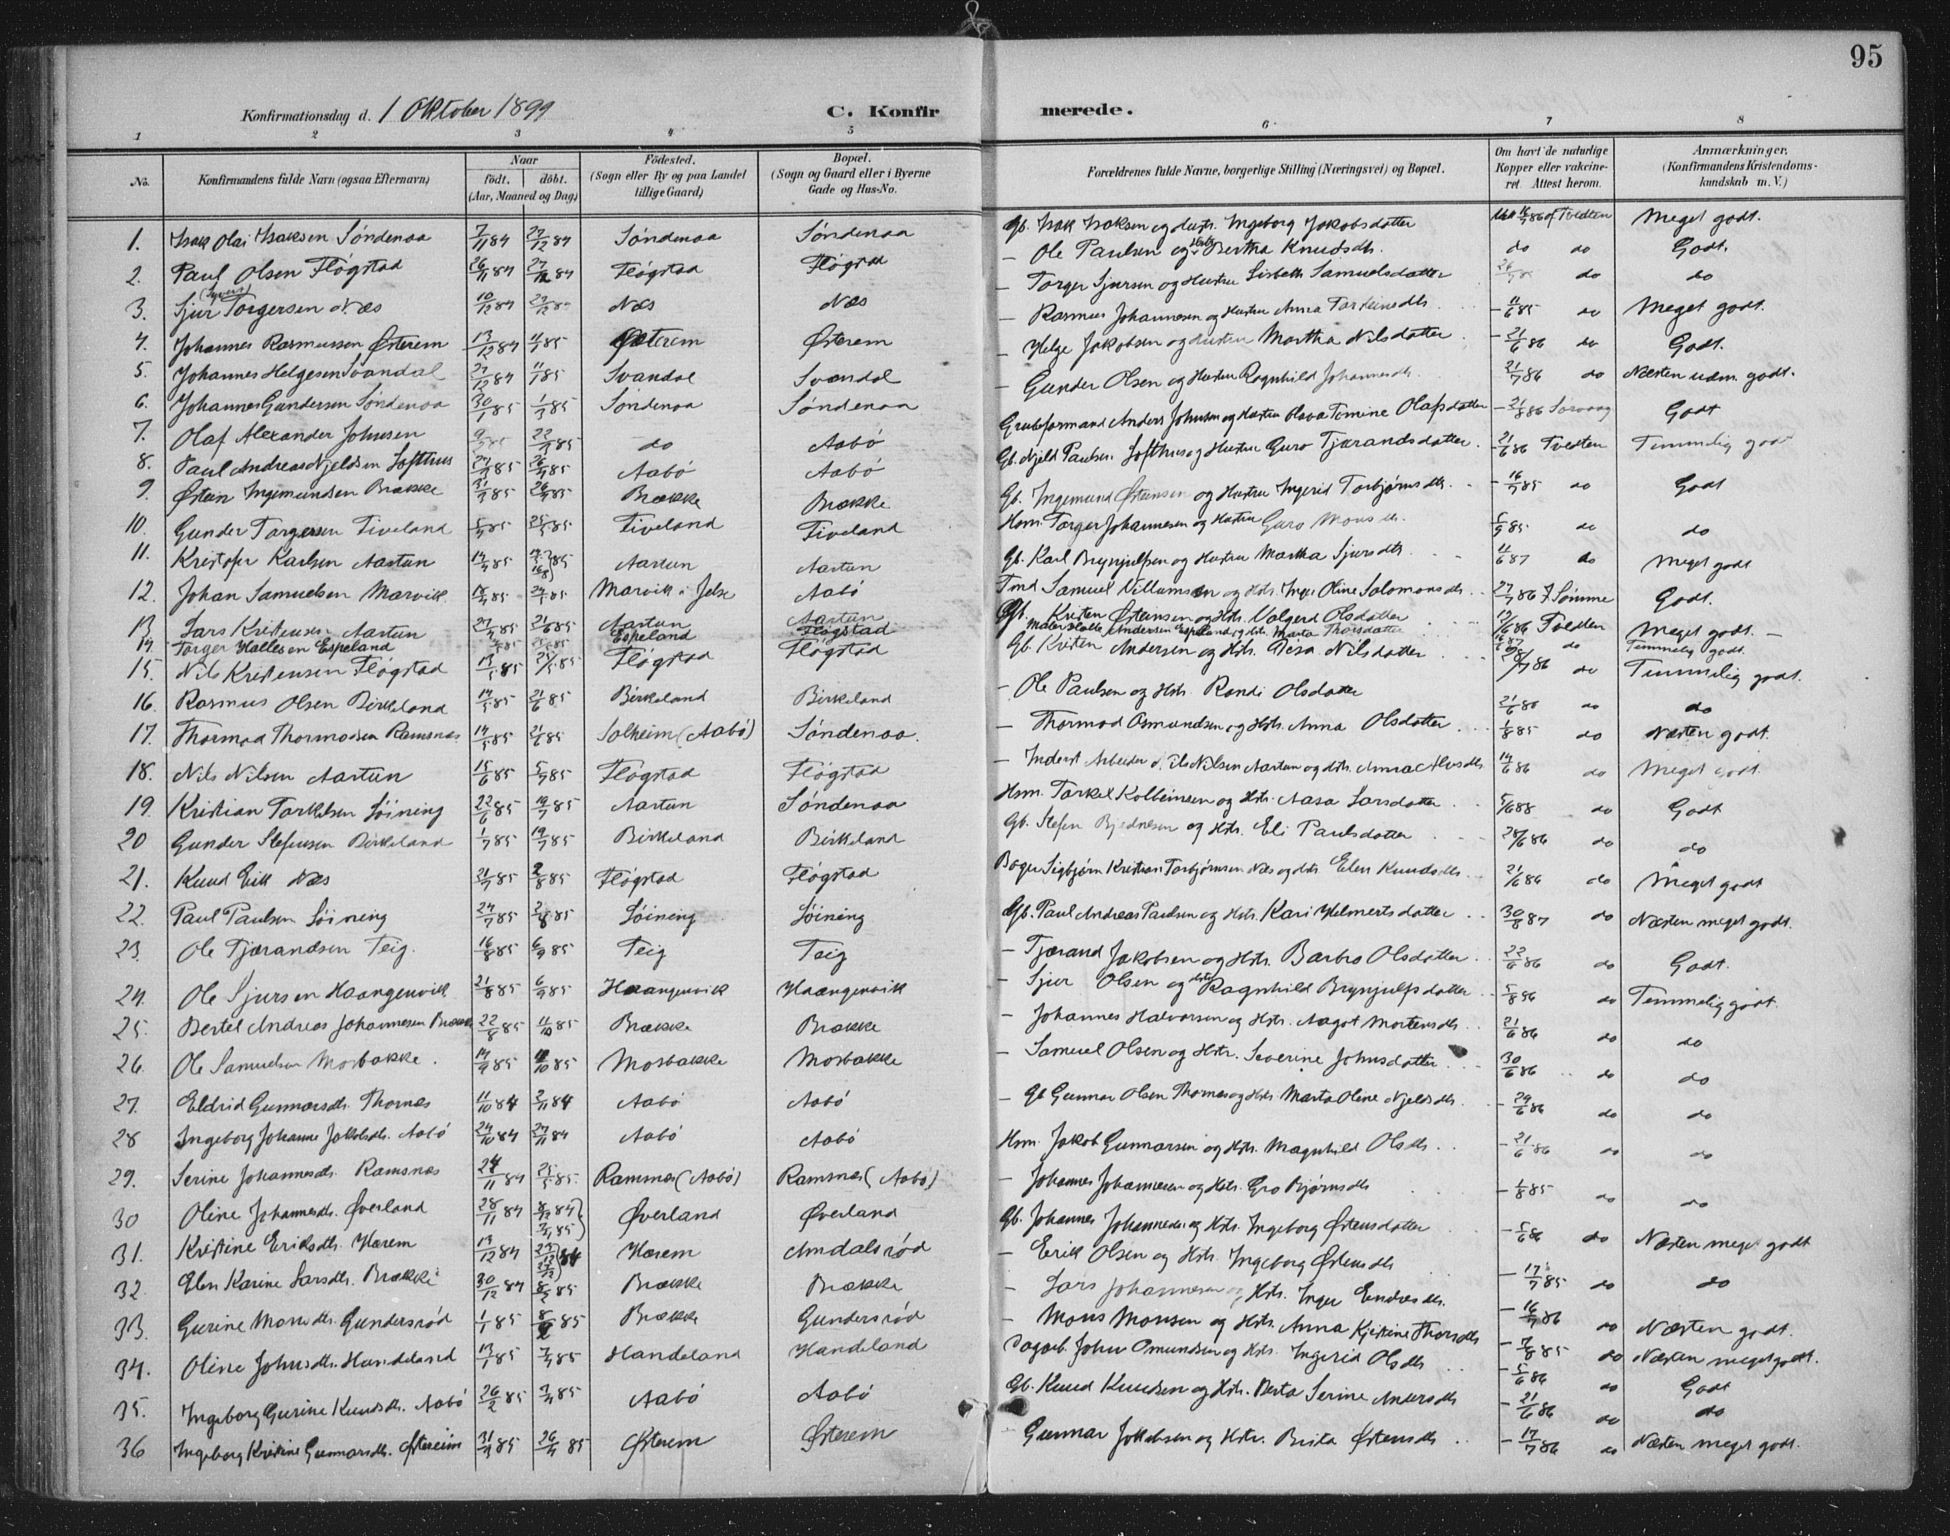 95
Konfirmationsdag d. 1 Oktober 1899 C. Konfirmerede.
1 2 3 4 5 6 7 8
No. Konfirmandens fulde Navn (ogsaa Efternavn) Naar født. døbt. (Aar, Maaned og Dag) Fødested. (Sogn eller By og paa Landet tillige Gaard) Bopæl. (Sogn og Gaard eller i Byerne Gade og Hus-No. Forældrenes fulde Navne, borgerlige Stilling (Næringsvei) og Bopæl. Om havt de naturlige Kopper eller vakcineret. Attest herom. Anmærkninger. (Konfirmandens Kristendomskundskab m. V.)
1. Isak Olai Isaksen Söndenaa 7/11 84 27/12 84 Söndenaa Söndenaa Gb. Isak Isaksen og Hustr. Ingeborg Jakobsdatter Tvedten Meget godt.
2. Paul Olsen Flögstad 26/11 84 27/12 84 Flögstad Flögstad — Ole Paulsen og Hstr. Bertha Knudsdtr. do do Godt.
3. Sjur Torgersen Næs 10/12 84 Næs Næs — Torger Sjursen og Hustru Lisbeth Samuelsdatter do do
4. Johannes Rasmussen Østerem 13/12 84 85 Østerem Østerem — Rasmus Johannesen og Hustru Anna Torsteinsdtr. 11/6 85 do Meget godt.
5. Johannes Helgesen Svandal 27/12 84 85 Svandal Svandal — Helge Jakobsen og Hustru Martha Nilsdatter 21/6 86 do Godt.
6. Johannes Gundersen Söndenaa 30/1 85 85 Söndenaa Söndenaa — Gunder Olsen og Hustru Ragnhild Johannesdtr. 86 do Næsten udm. godt.
7. Olaf Alexander Johnsen 85 do Aabö Grubeformand Anders Johnsen og Hustru Olava Tomine Olafsdatter 21/8 86 Godt
8. Paul Andreas Njeldsen Lofthus 85 85 Aabö Aabö Gb. Njeld Paulsen Lofthus og Hustru Guro Tjærandsdatter 21/6 86 Tvedten Temmelig godt
9. Østen Ingemundsen Brække 85 85 Brække Brække Gb. Ingemund Østensen og Hustru Ingerid Torbjörnsdtr. 16/7 85 do Godt
10. Gunder Torgersen Tiveland 85 85 Tiveland Tiveland Hsm. Torger Johannesen og Hustru Guro Monsdtr. 85 do do
11. Kristofer Karlsen Aartun 85 85 Aartun Aartun Gb. Karl Brynjulfsen og Hustru Martha Sjursdtr. 11/6 87 do Meget godt
12. Johan Samuelsen Marvik 85 85 Marvik i Jelse Aabö Samuel Villumsen og Hstr. Inger Oline Salomonsdtr. 27/7 86 Godt.
13. Lars Kristensen Aartun 85 85 Aartun Aartun Gb. Kristen Østensen og Hstr. Valgerd Olsdatter 86 Tvedten Meget godt. —
14. Torger Hallesen Espeland 85 Espeland Flögstad Maler Halle Andersen Espeland og Hstr. Marta Thorsdatter do Temmelig godt.
15. Nils Kristensen Flögstad 85 85 Flögstad Flögstad Gb. Kristen Andersen og Hstr. Nilsdatter 86 do Temmelig godt.
16. Rasmus Olsen Birkeland 85 21/6 85 Birkeland Birkeland — Ole Paulsen og Hstr. Randi Olsdatter do do
17. Thormod Thormodsen Ramsnæs 14/5 85 21/6 85 Solheim (Aabö) Söndenaa. — Thormod Osmundsen og Hstr. Anna Olsdatter 1/8 85 do Næsten godt.
18. Nils Nilsen Aartun 15/6 85 5/7 85 Flögstad Flögstad — Inderst Arbeider Nilsen Aartun og Hstr. Anna 14/6 86 do Meget godt.
19. Kristian Torkelsen Löining 22/6 85 19/7 85 Aartun Söndenaa Hsm. Torkel Kolbeinsen og Hstr. Aasa Larsdatter 88 do Godt
20 Gunder Stefensen Birkeland 1/7 85 19/7 85 Birkeland Birkeland Gb. Stefen Bjednesen og Hstr. Eli Paulsdatter 86 do do
21. Knud Erik Næs 21/7 85 2/8 85 Flögstad Flögstad Sigbjörn Kristian Torbjörnsen Næs og Hstr. Elen Knudsdtr. 21/6 86 do Meget godt
22. Paul Paulsen Löining 24/7 85 2/8 85 Löining Löining Gb. Paul Andreas Paulsen og Hstr. Kari Helmertsdatter 30/8 87 do Næsten meget godt.
23. Ole Tjærandsen Teig. 16/8 85 6/9 85 Teig Teig — Tjærand Jakobsen og Hstr. Barbro Olsdatter 22/6 86 do Godt.
24. Ole Sjursen Haangenvik 21/8 85 6/9 85 Haangenvik Haangenvik — Sjur Olsen og Hstr. Ragnhild Brynjulfsdatter 5/8 86 do Temmelig godt.
25. Bertel Andreas Johannesen Brække 22/8 85 11/10 85 Brække Brække — Johannes Halvorsen og Hstr. Aagot Mortensdtr. 21/6 86 do do
26. Ole Samuelsen Mosbakke. 14/9 85 11/10 85 Mosbakke Mosbakke — Samuel Olsen og Hstr. Severine Johnsdatter 30/6 86 do do
27. Eldrid Gunnarsdtr. Thornes 11/10 84 2/11 84 Aabö Aabö — Gb Gunnar Olsen Thornes og Hstr. Marta Oline Njeldsdtr. 29/6 86 do do
28 Ingeborg Johanne Jakobsdtr. Aabö 24/10 84 27/11 84 Aabö Aabö Hsm. Jakob Gunnarsen og Hstr. Magnhild Olsdtr. 21/6 86 do do
29. Serine Johannesdtr. Ramsnæs 24/11 84 25/5 85 Ramsnæs (Aabö) Ramsnæs (Aabö) — Johannes Johannesen og Hstr. Gro Bjørnsdtr. 1/8 85 do do
30 Oline Johannesdtr. Øverland 28/11 84 8/12 84 85 Øverland Øverland Gb. Johannes Johannesen og Hstr. Ingeborg Østensdatter 86 do Næsten meget godt
31. Kristine Eriksdtr. Hærem 13/12 84 84 Hærem Amdalsröd — Erik Olsen og Hstr. Ingeborg Østensdtr. 17/7 85 do do
32. Elen Karine Larsdtr. Brække 30/12 84 8/2 85 Brække Brække — Lars Johannesen og Hstr. Inger Endresdtr. 16/7 86 do Næsten godt.
33. Gurine Monsdtr. Gundersröd 1/1 85 8/2 85 Brække Gundersröd — Mons Monsen og Hstr. Anna Kjistine Thorsdtr. 7/8 85 do Næsten meget godt.
34. Oline Johnsdtr. Handeland 13/1 85 85 Handeland Handeland Dagarb. John Osmundsen og Hstr. Ingerid Olsdtr. 5/6 86 do Godt
35. Ingeborg Gurine Knudsdtr. Aabö 26/2 85 85 Aabö Aabö Gb. Knud Knudsen og Hstr. Berta Serine Andersdtr. 21/6 86 do do
36 Ingeborg Kristine Gunnarsdtr. Østereim 85 85 Østerem Østerem Gunnar Jakobsen og Hstr. Brita Østensdtr. 17/7 86 do Næsten meget godt.